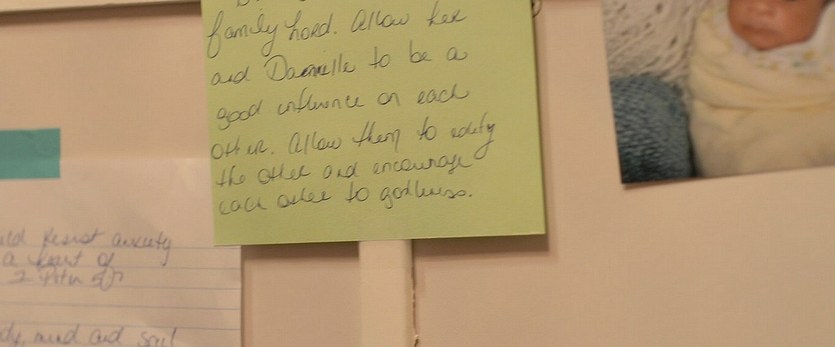 family Lord. Allow her
and Danielle to be a
good influence on each
other. Allow them to edify
the other and encourage
each other to godliness.
resist anxiety
a heart of
body, mind and soul